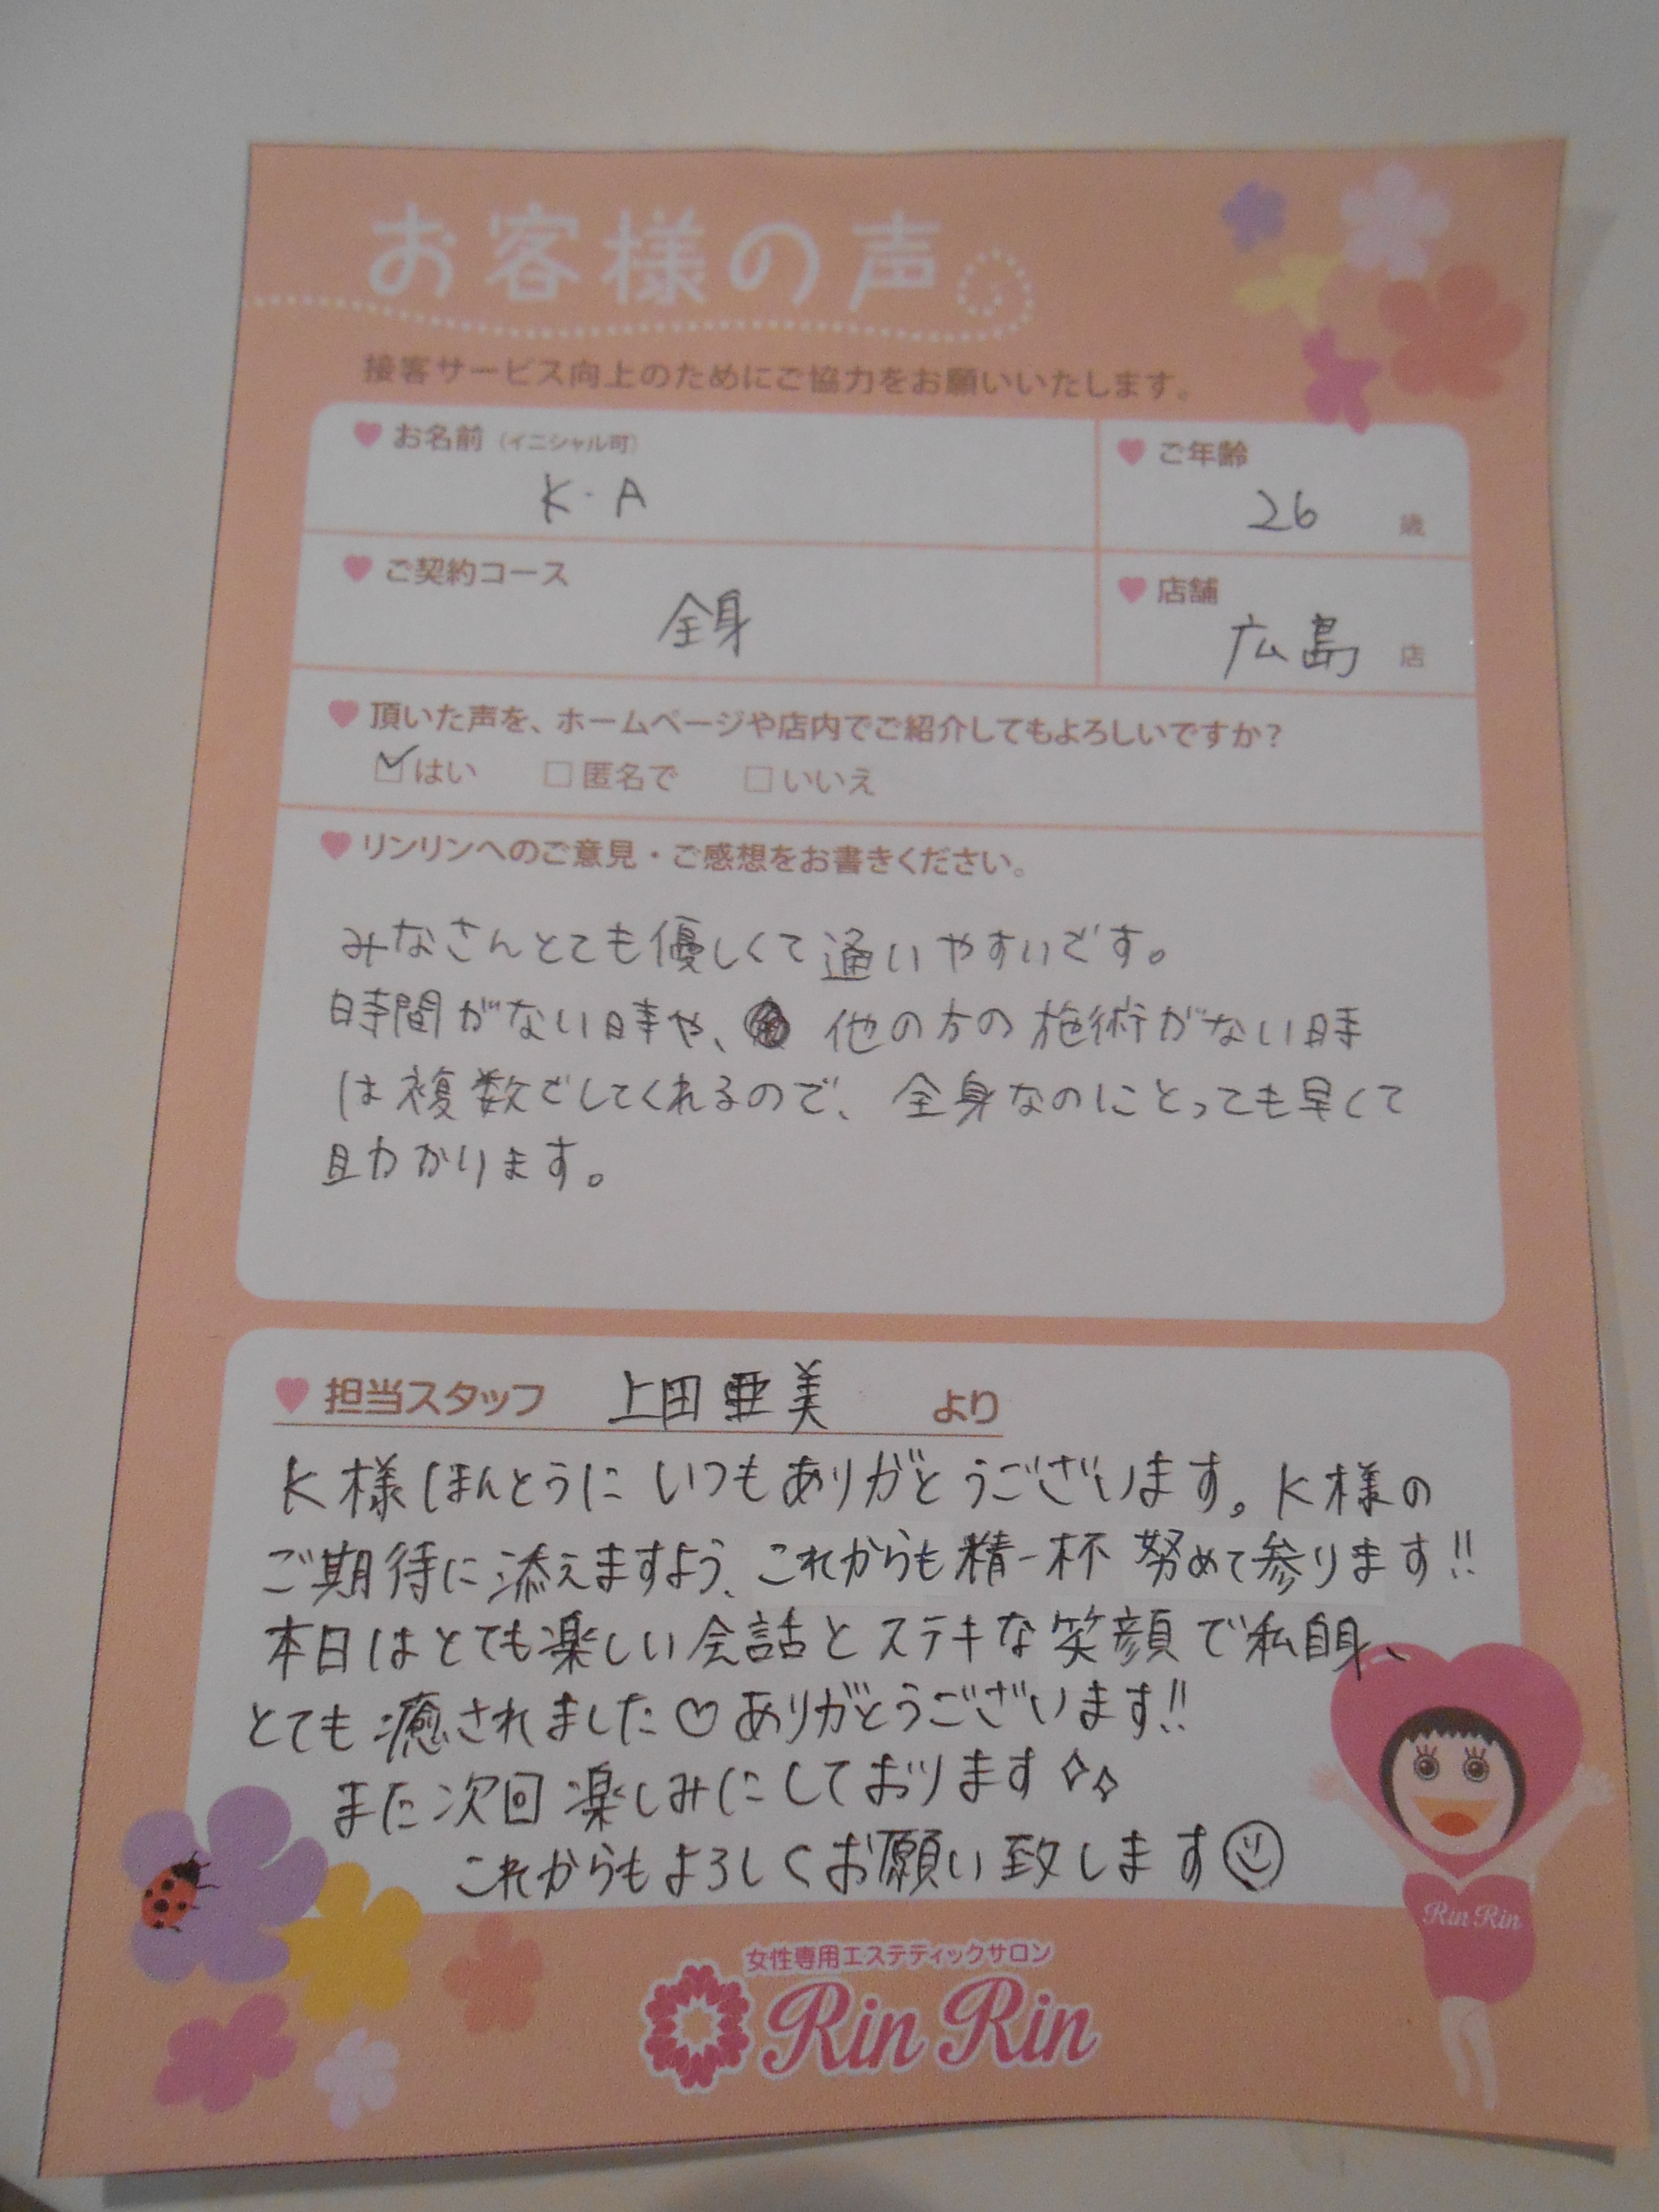 お客様の声
接客サービス向上のためにご協力をお願いいたします。
お名前（イニシャル可）
K・A
ご年齢
26 歳
ご契約コース
全身
店舗
広島 店
頂いた声を、ホームページや店内でご紹介してもよろしいですか？
はい 匿名で いいえ
リンリンへのご意見・ご感想をお書きください。
みなさんとても優しくて通いやすいです。
時間がない時や、他の方の施術がない時
は複数でしてくれるので、全身なのにとっても早くて
助かります。
担当スタッフ 上田亜美 より
K様ほんとうにいつもありがとうございます。K様の
ご期待に添えますよう、これからも精一杯努めて参ります!!
本日はとても楽しい会話とステキな笑顔で私自身、
とても癒されました♡ありがとうございます!!
また次回楽しみにしております✧✧
これからもよろしくお願い致します☺
Rin Rin
女性専用エステティックサロン
Rin Rin